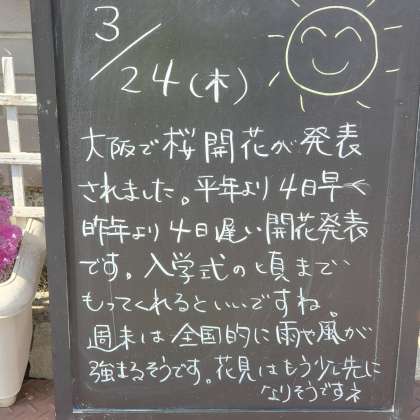 3/24(木)
大阪で桜開花が発表
されました。平年より4日早く
昨年より4日遅い開花発表
です。入学式の頃まで
もってくれるといいですね。
週末は全国的に雨や風が
強まるそうです。花見はもう少し先に
なりそうですネ